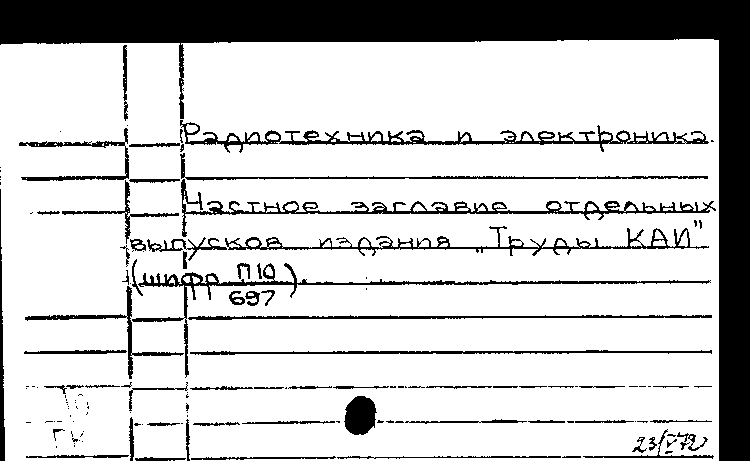 Радиотехника и электроника.
Частное заглавие отдельных
выпусков издания „Труды КАИ"
(шифр П10/697).
23/V-72